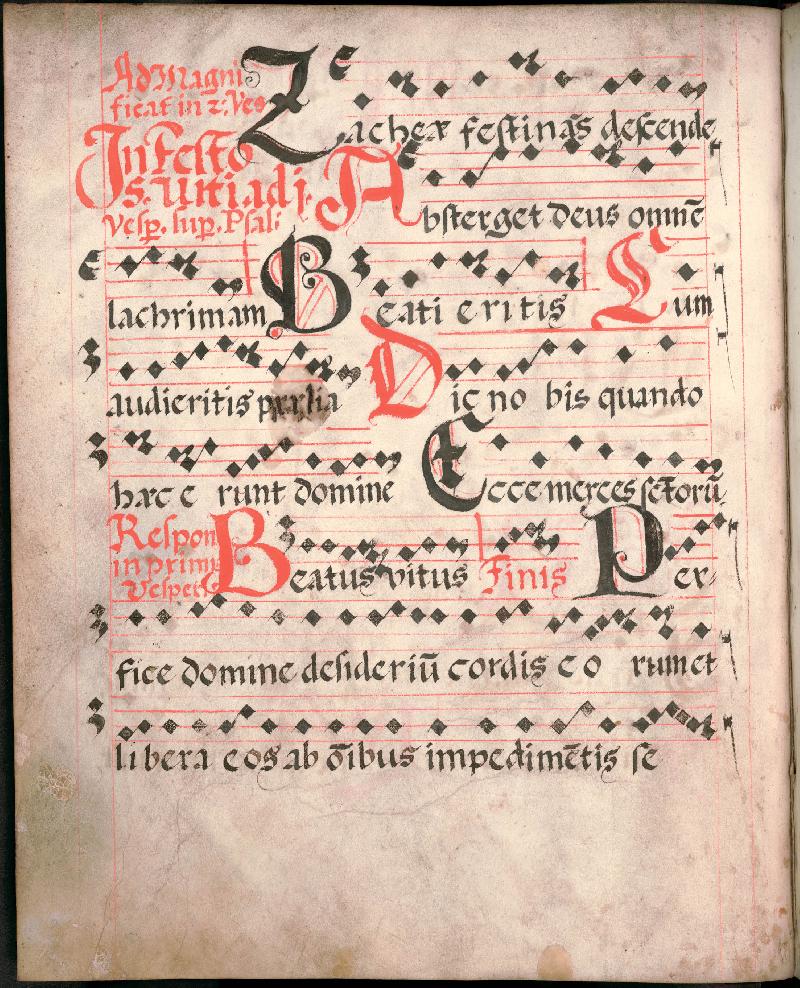 Ad Magni
ficat in 2. Ves
Zacheæ festinãs descende
In Festo
S. Vitiadj.
Vesp. sup. Psal:
Absterget Deus omnẽ
lachrimam Beati eritis Cum
audieritis prælia Dic no bis quando
hæc e runt domine Ecce merces sctorũ
Respon
in primis
Vesperis
Beatus vitus Finis Per-
fice domine desideriũ cordis eo rum et
libera eos ab õibus impedimẽtis se